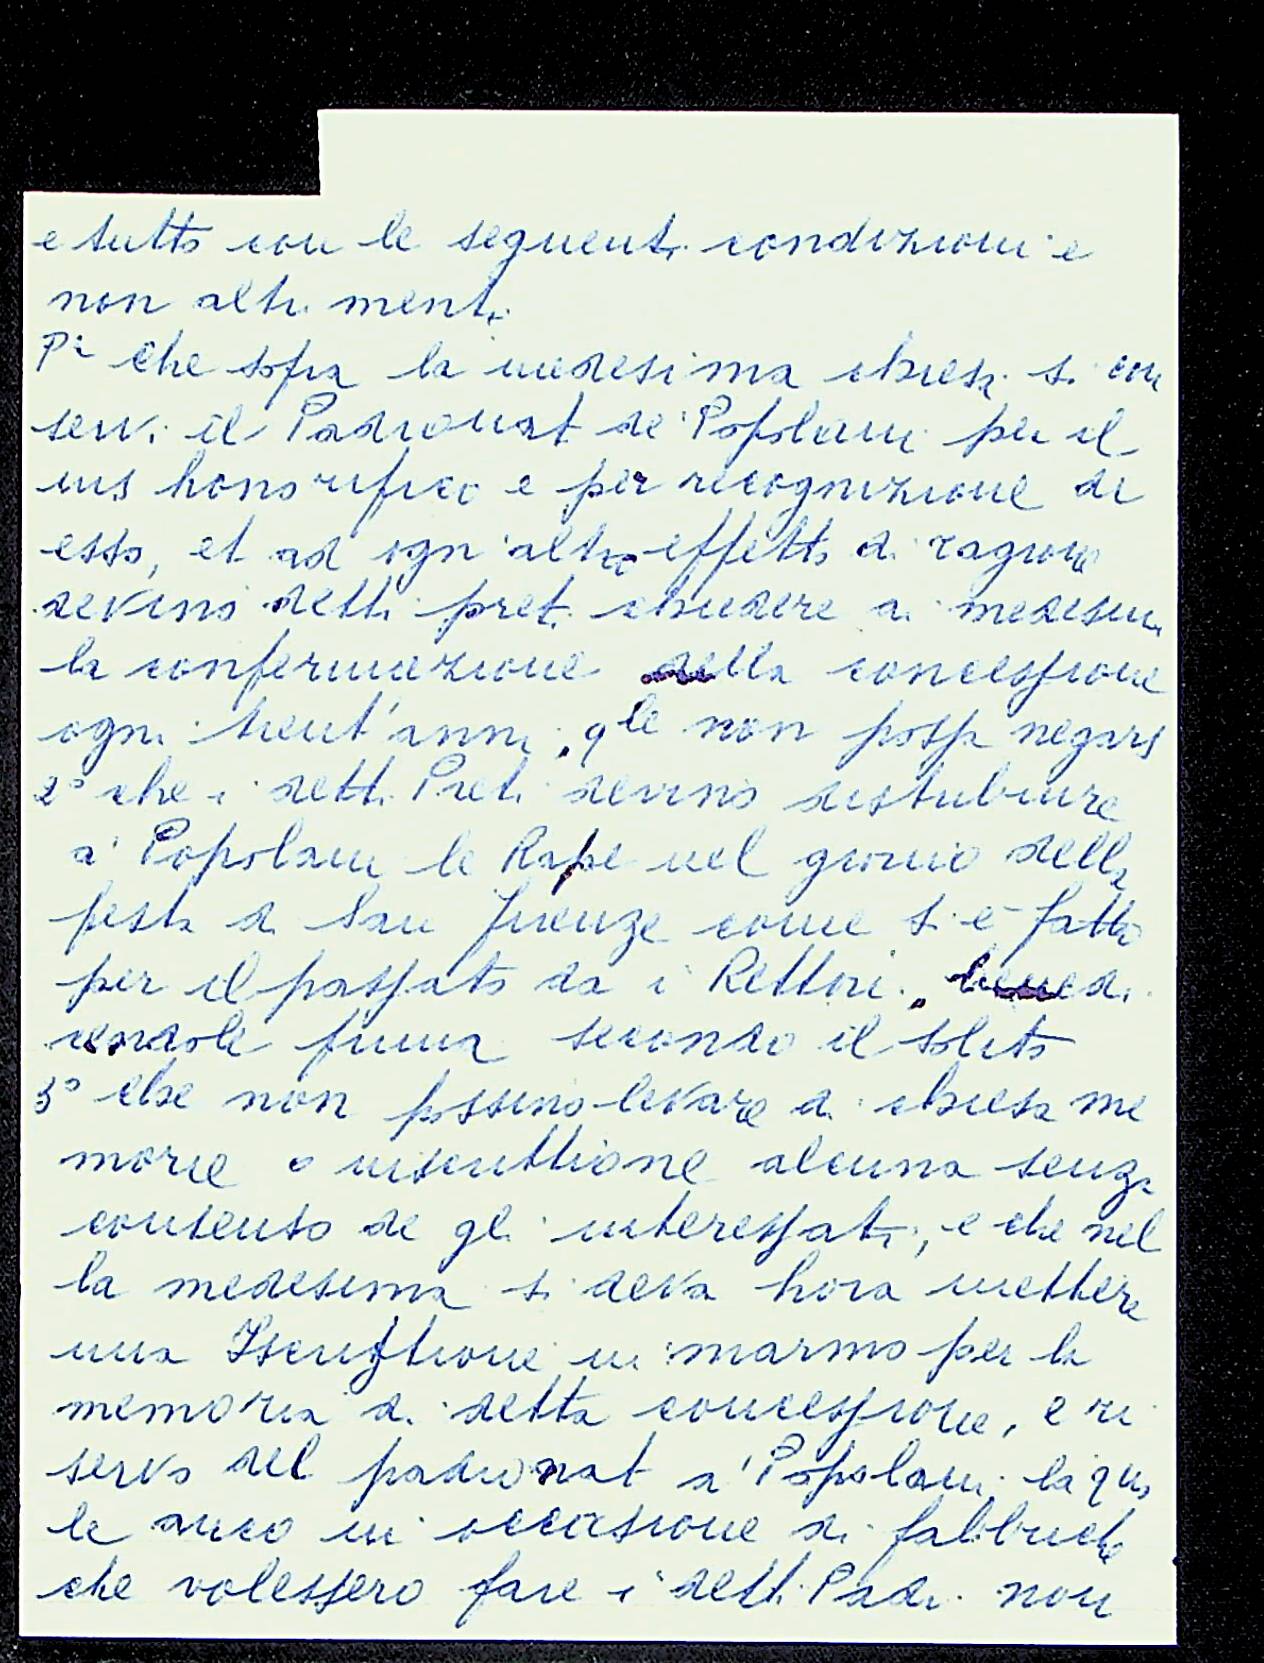 e tutto con le seguenti condizioni e
non altrimenti.
P.a che sopra la medesima chiesa si con
servi il Padronat de Popolani per il
ius honorifico e per recognizione di
esso, et ad ogn'altro effetto di ragione
devino detti preti chiedere a medesimi
la confermazione della concessione
ogni trent'anni, qle non possa negarsi
2° che i detti Preti devino distribuire
a' Popolani le Rape nel giorno della
festa di San Firenze come si è fatto
per il passato da i Rettori, bened.
cendole prima secondo il solito
3° che non possino levare di chiesa me
morie o inscrittione alcuna senza
consenso de gli interessati, e che nel
la medesima si deva hora mettere
una Iscrittione in marmo per la
memoria di detta concessione, e ri
servo del padronat a' Popolani, la qua
le anco in occasione di fabbriche
che volessero fare i detti Padri non